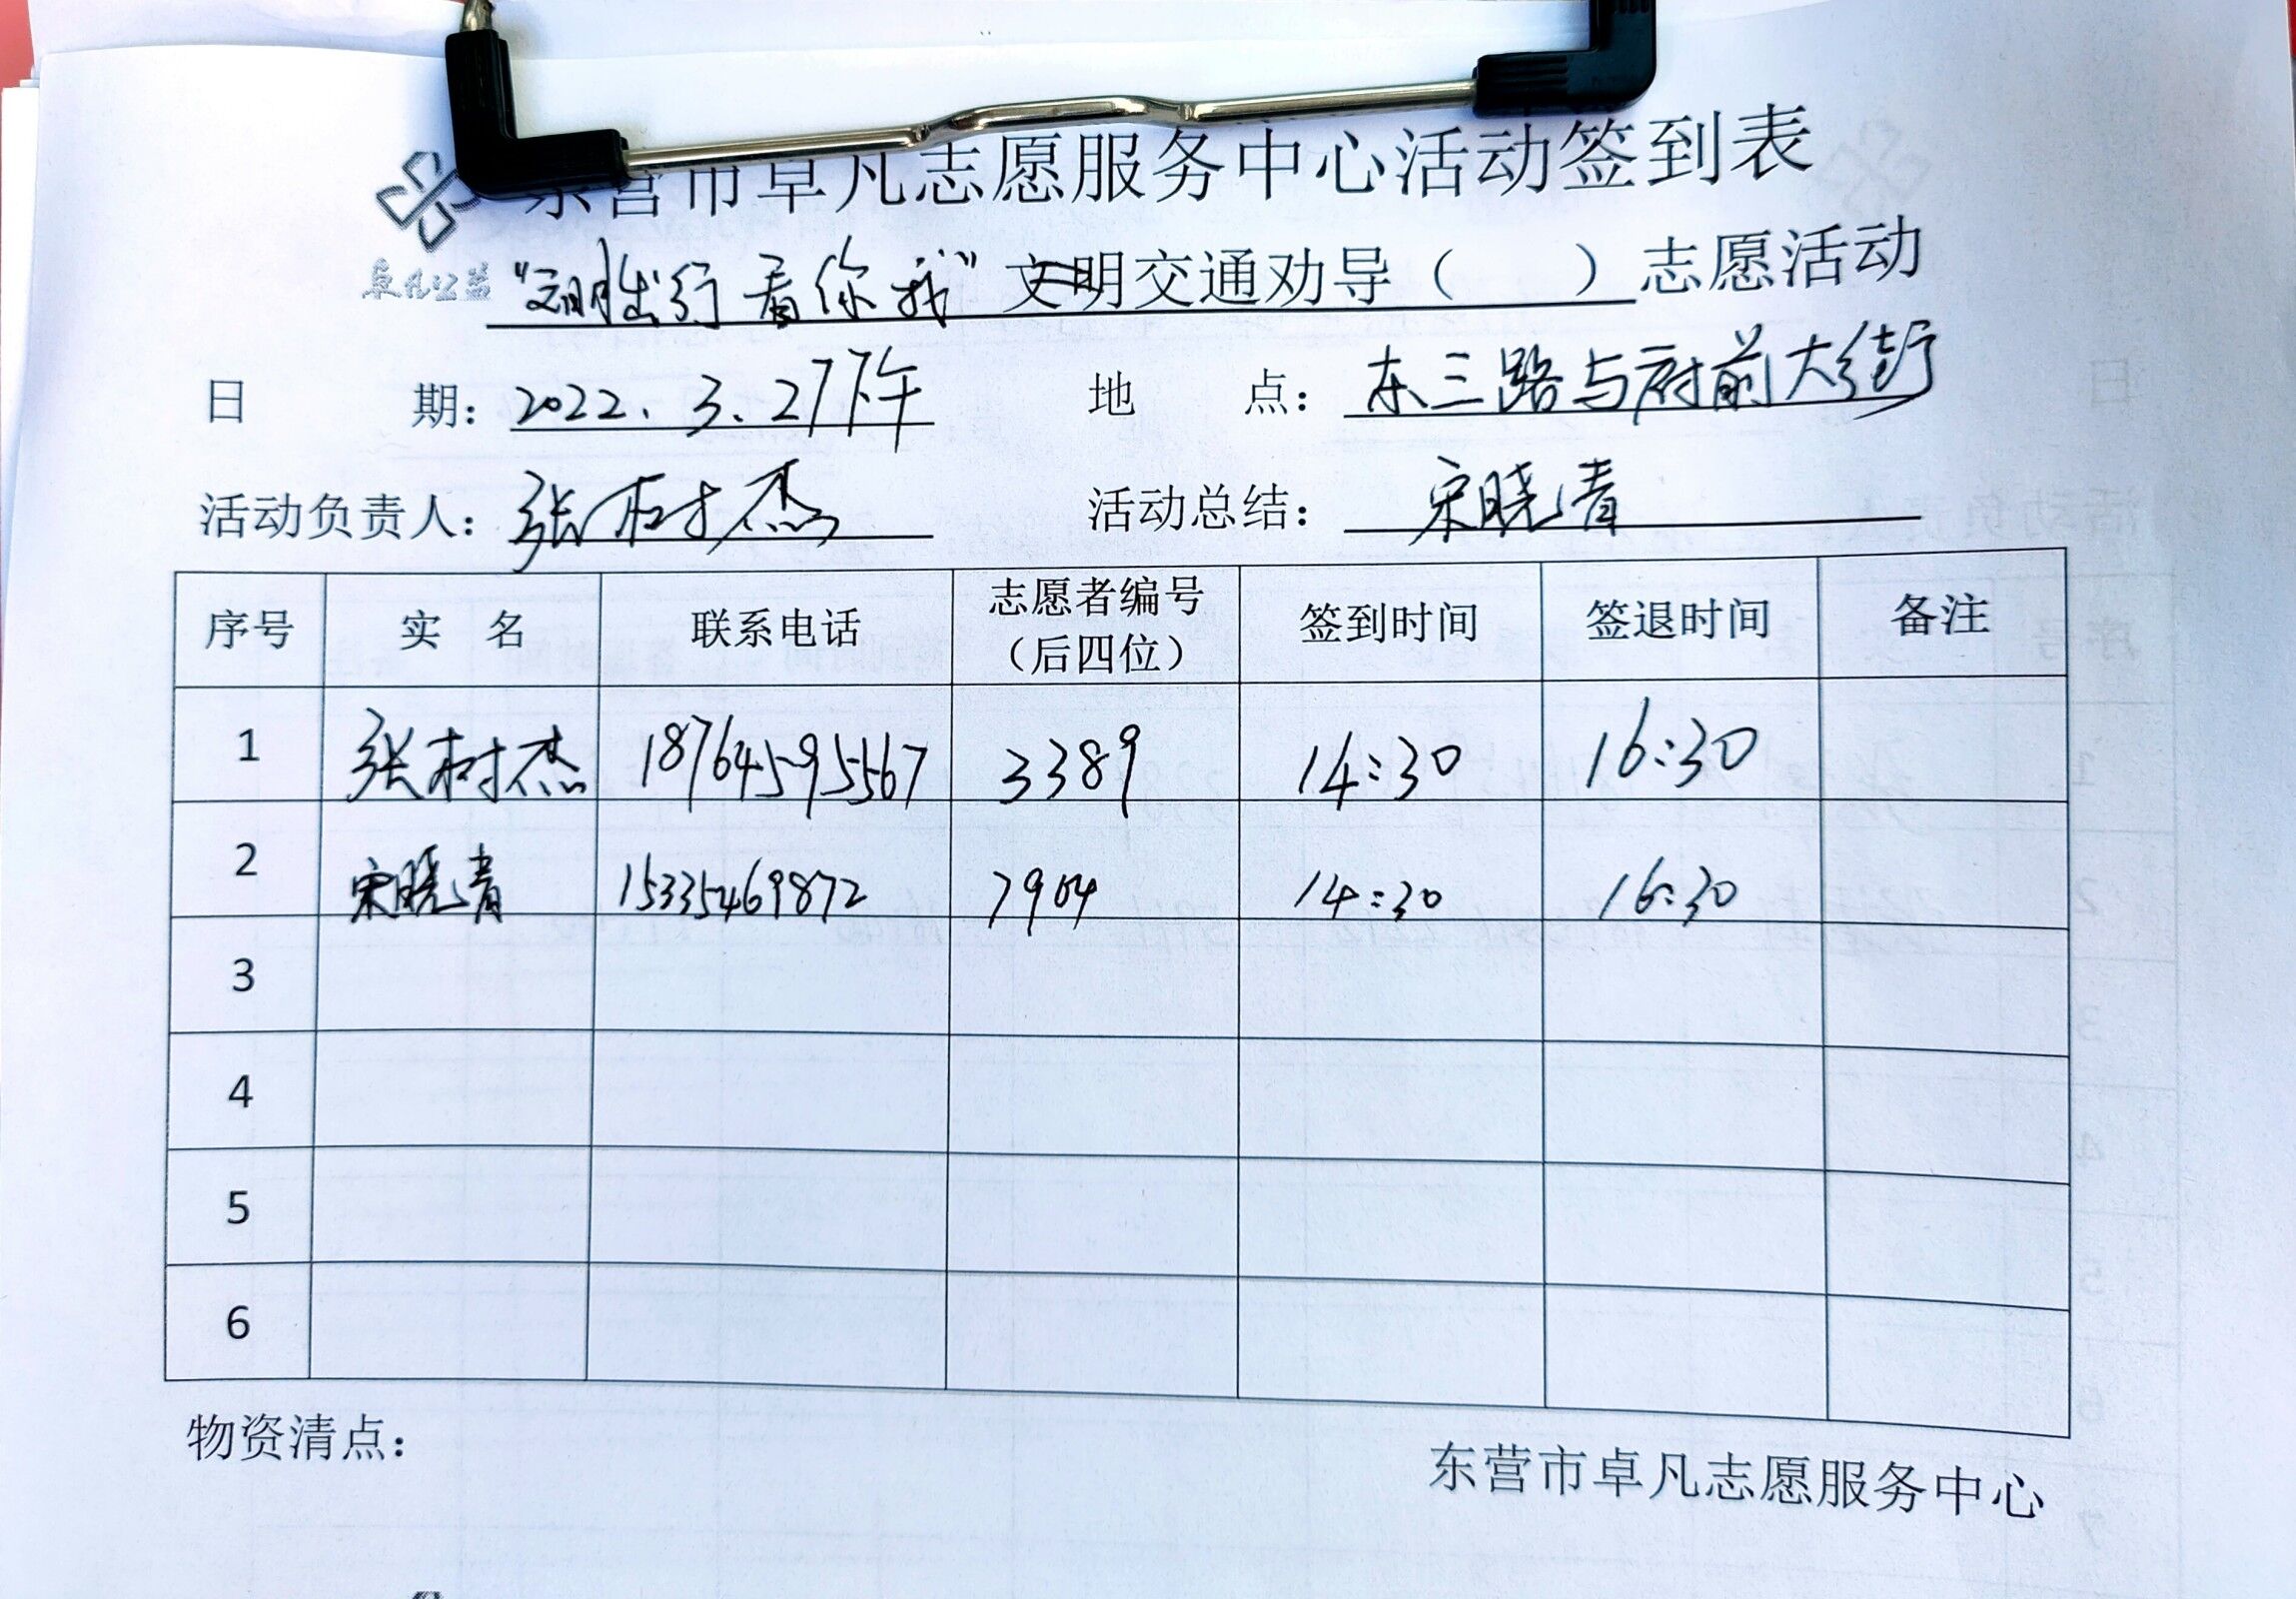 东营市卓凡志愿服务中心活动签到表
卓凡公益
“文明出行 看你我”文明交通劝导（ ）志愿活动
日 期：2022.3.27下午 地 点：东三路与府前大街
活动负责人：张树杰 活动总结：宋晓青
序号 实 名 联系电话 志愿者编号（后四位） 签到时间 签退时间 备注
1 张树杰 18764595567 3389 14:30 16:30
2 宋晓青 15335469872 7904 14:30 16:30
3
4
5
6
物资清点：
东营市卓凡志愿服务中心